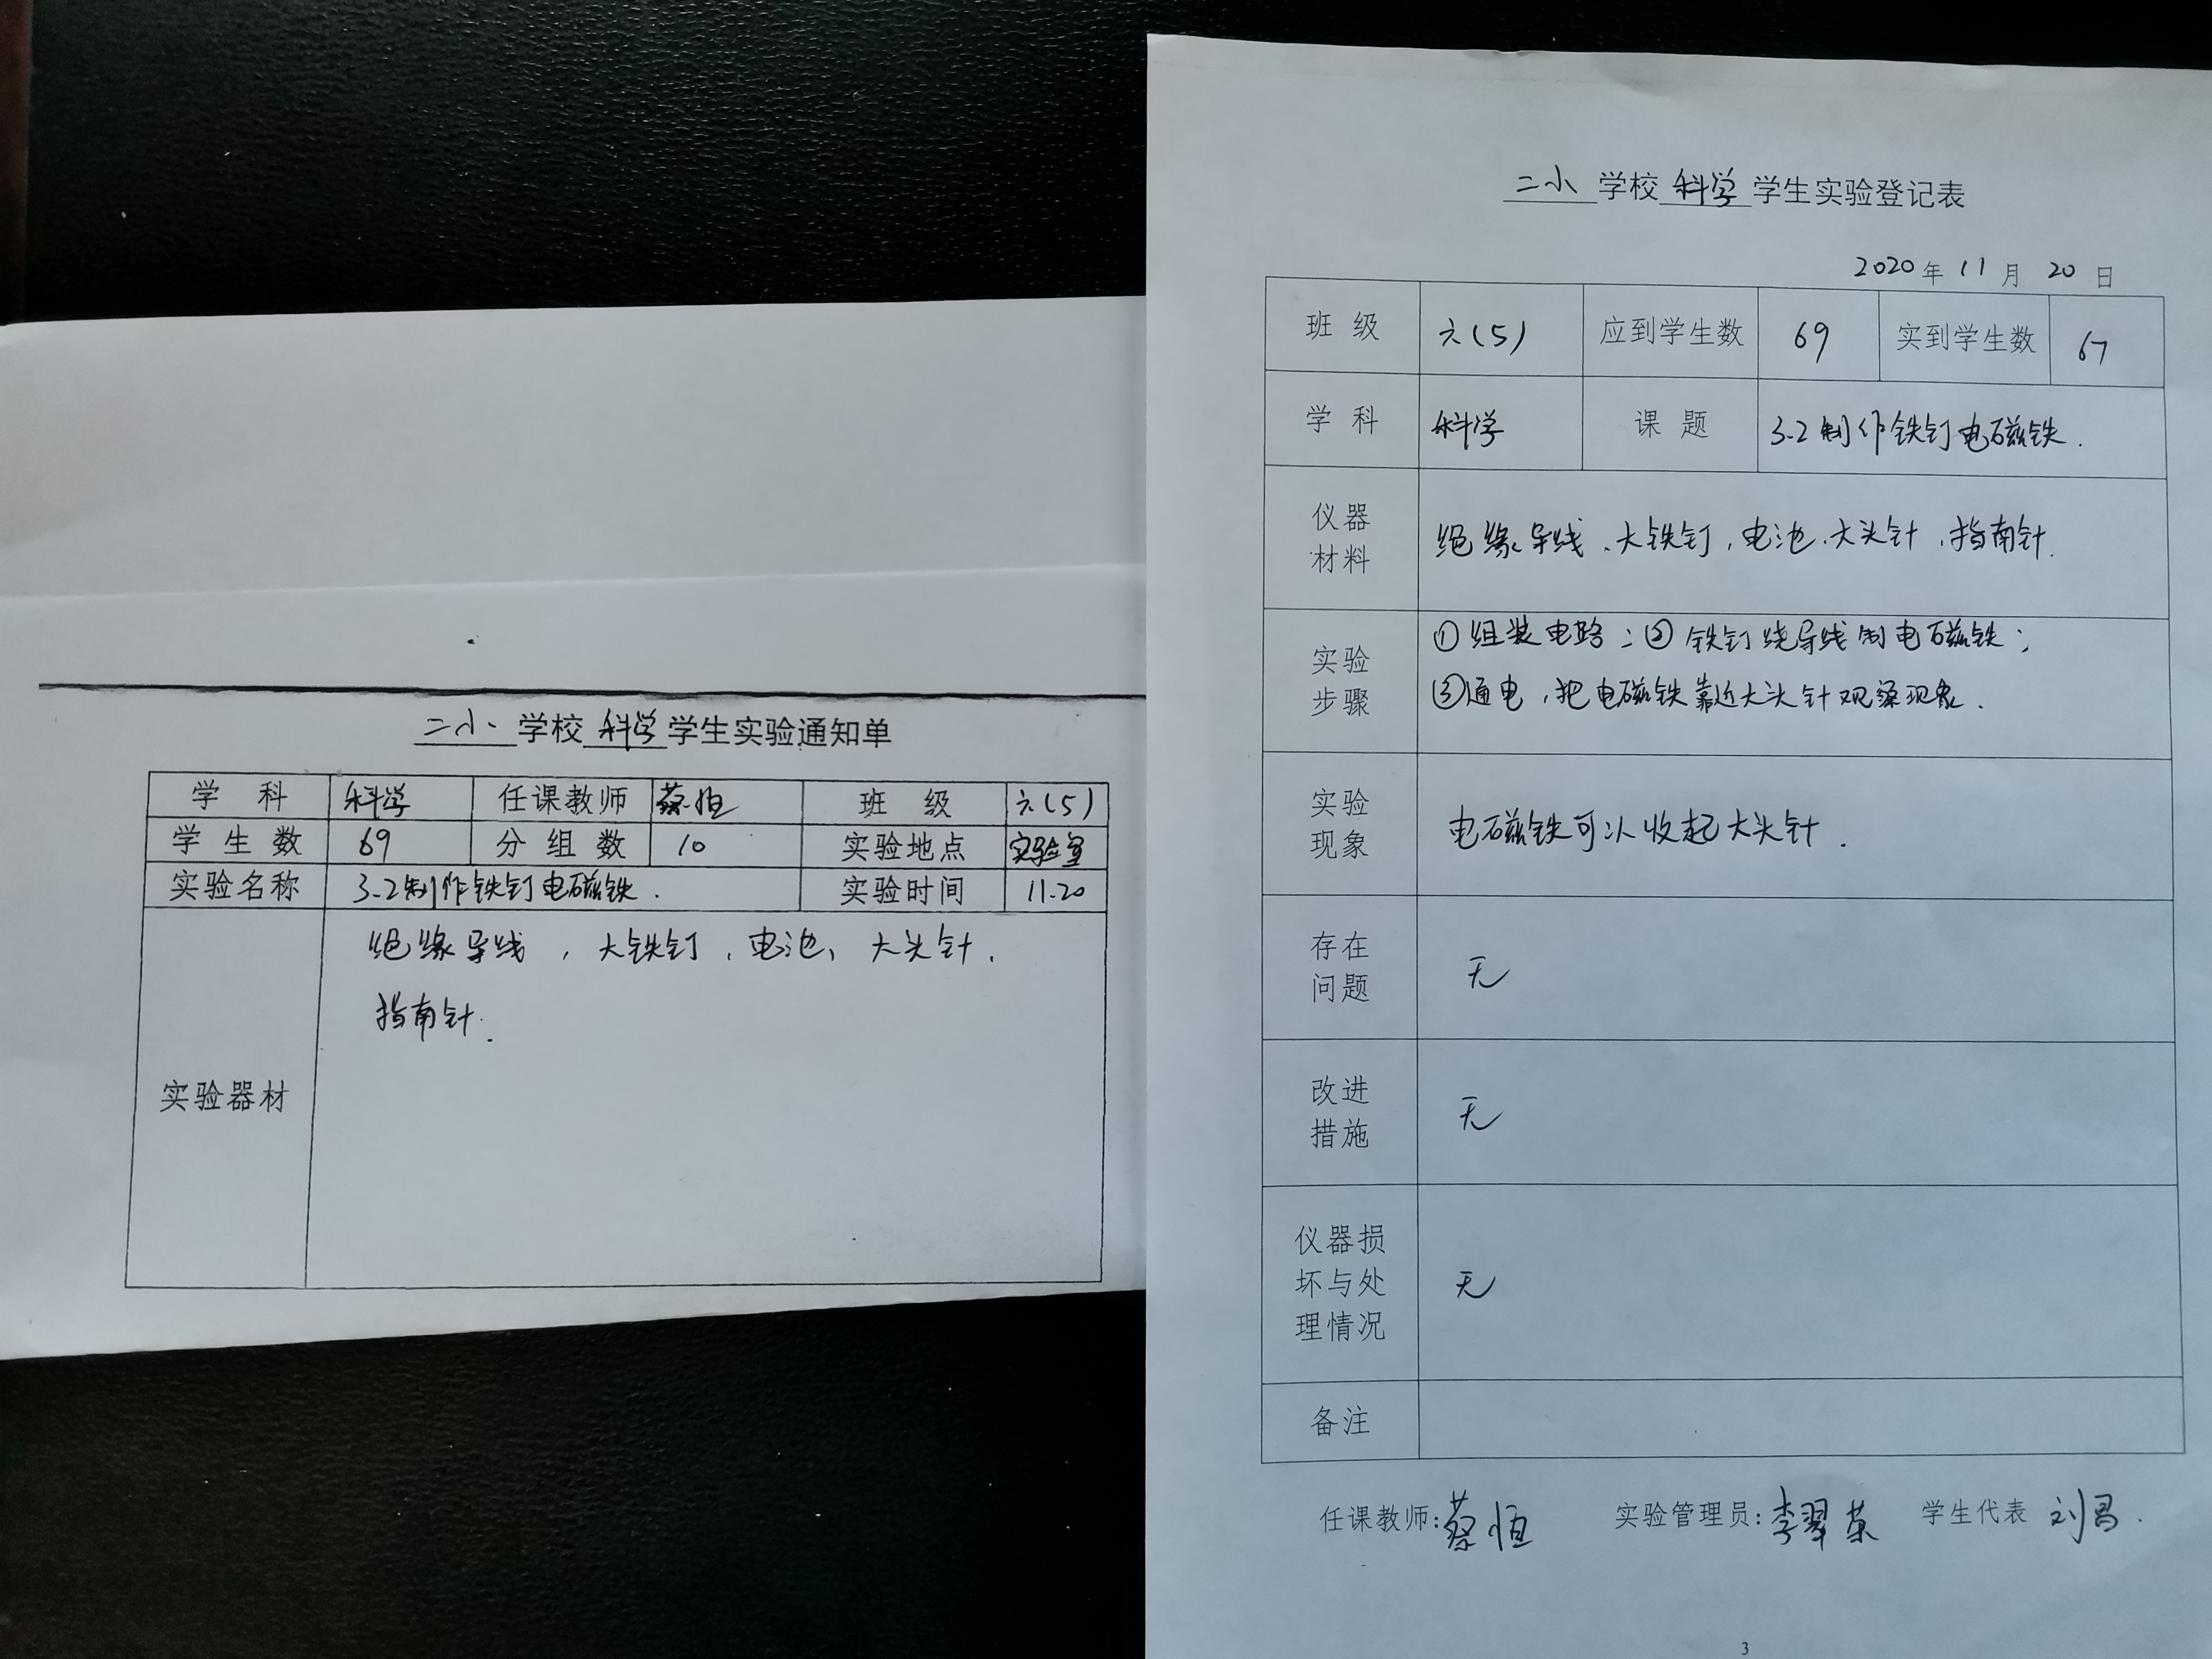 二小 学校 科学 学生实验通知单
学 科 科学 任课教师 蔡恒 班 级 六(5)
学 生 数 69 分 组 数 10 实验地点 实验室
实验名称 3-2制作铁钉电磁铁. 实验时间 11.20
实验器材
绝缘导线,大铁钉,电池、大头针.
指南针.
二小 学校 科学 学生实验登记表
2020 年 11 月 20 日
班 级 六(5) 应到学生数 69 实到学生数 67
学 科 科学 课 题 3-2制作铁钉电磁铁.
仪器
材料
绝缘导线、大铁钉,电池、大头针、指南针.
实验
步骤
①组装电路;②铁钉绕导线制电磁铁;
③通电,把电磁铁靠近大头针观察现象.
实验
现象
电磁铁可以收起大头针.
存在
问题
无
改进
措施
无
仪器损
坏与处
理情况
无
备注
任课教师:蔡恒 实验管理员:李翠英 学生代表 刘昌.
3